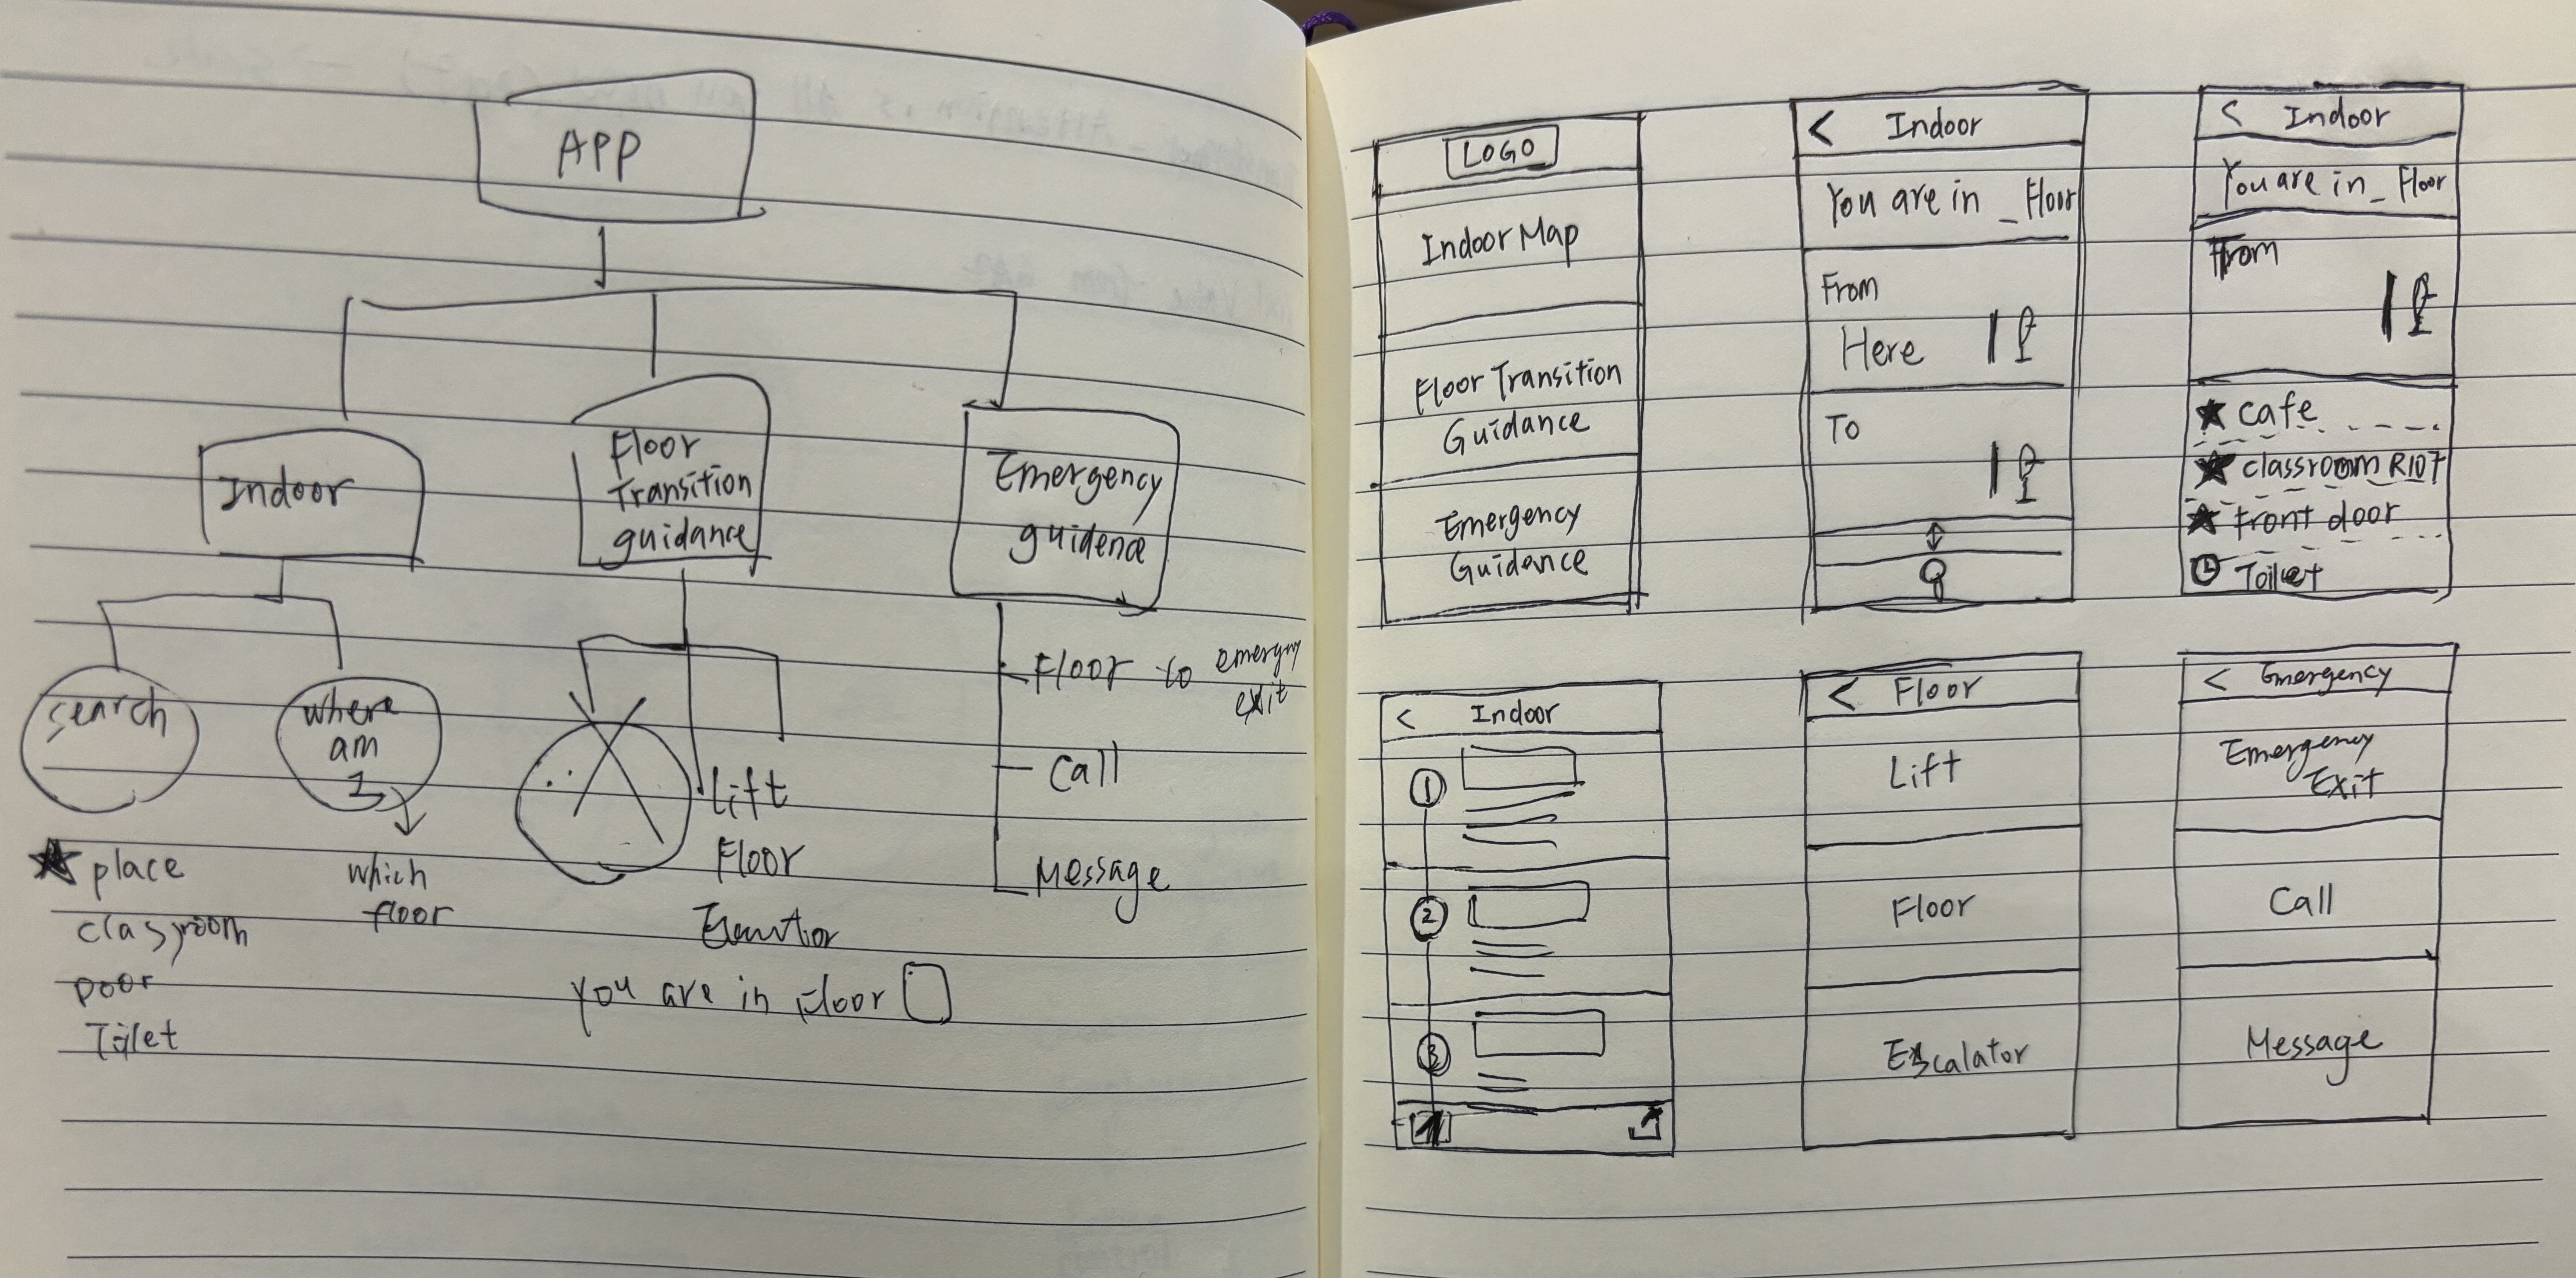 APP
Indoor
Floor
Transition
guidance
Emergency
guidence
search
where
am
I
★ place
classroom
Door
Toilet
which
floor
Lift
Floor
you are in Floor
Floor to emergny
exit
Call
Message
LOGO
Indoor Map
Floor Transition
Guidance
Emergency
Guidance
< Indoor
You are in _ Floor
From
Here
To
< Indoor
You are in _ Floor
From
★ cafe
★ classroom R107
★ Front door
Toilet
< Indoor
1
2
3
< Floor
Lift
Floor
Escalator
< Emergency
Emergency
Exit
Call
Message